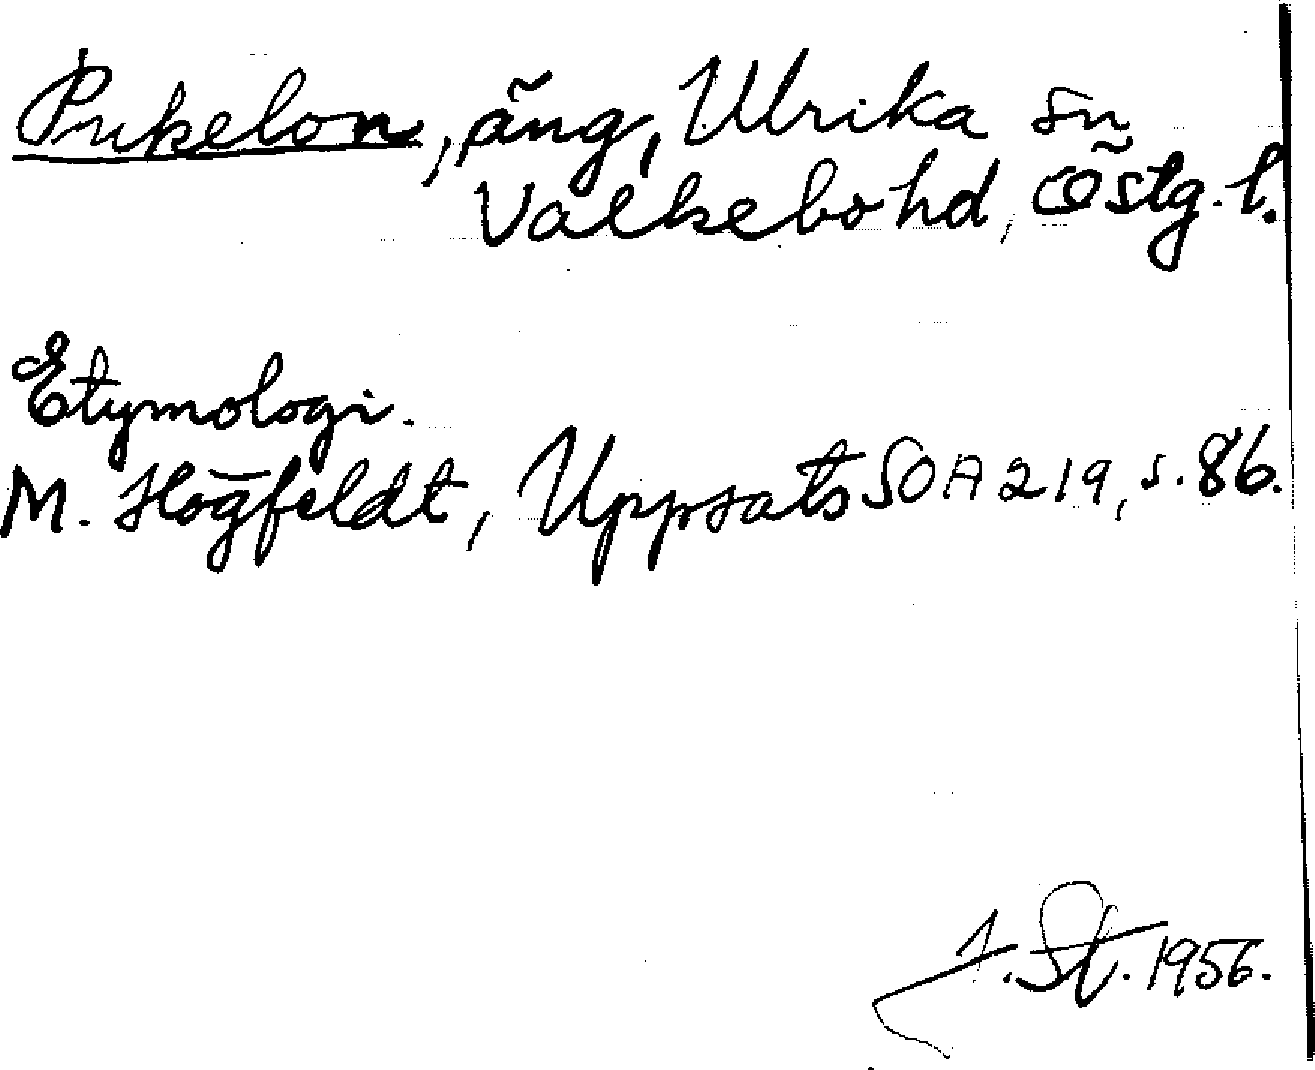 Pukelon, äng, Ulrika sn
Valkebo hd, Östg. l.
Etymologi.
M. Högfeldt, Uppsats SOA 219, s. 86.
J. St. 1956.